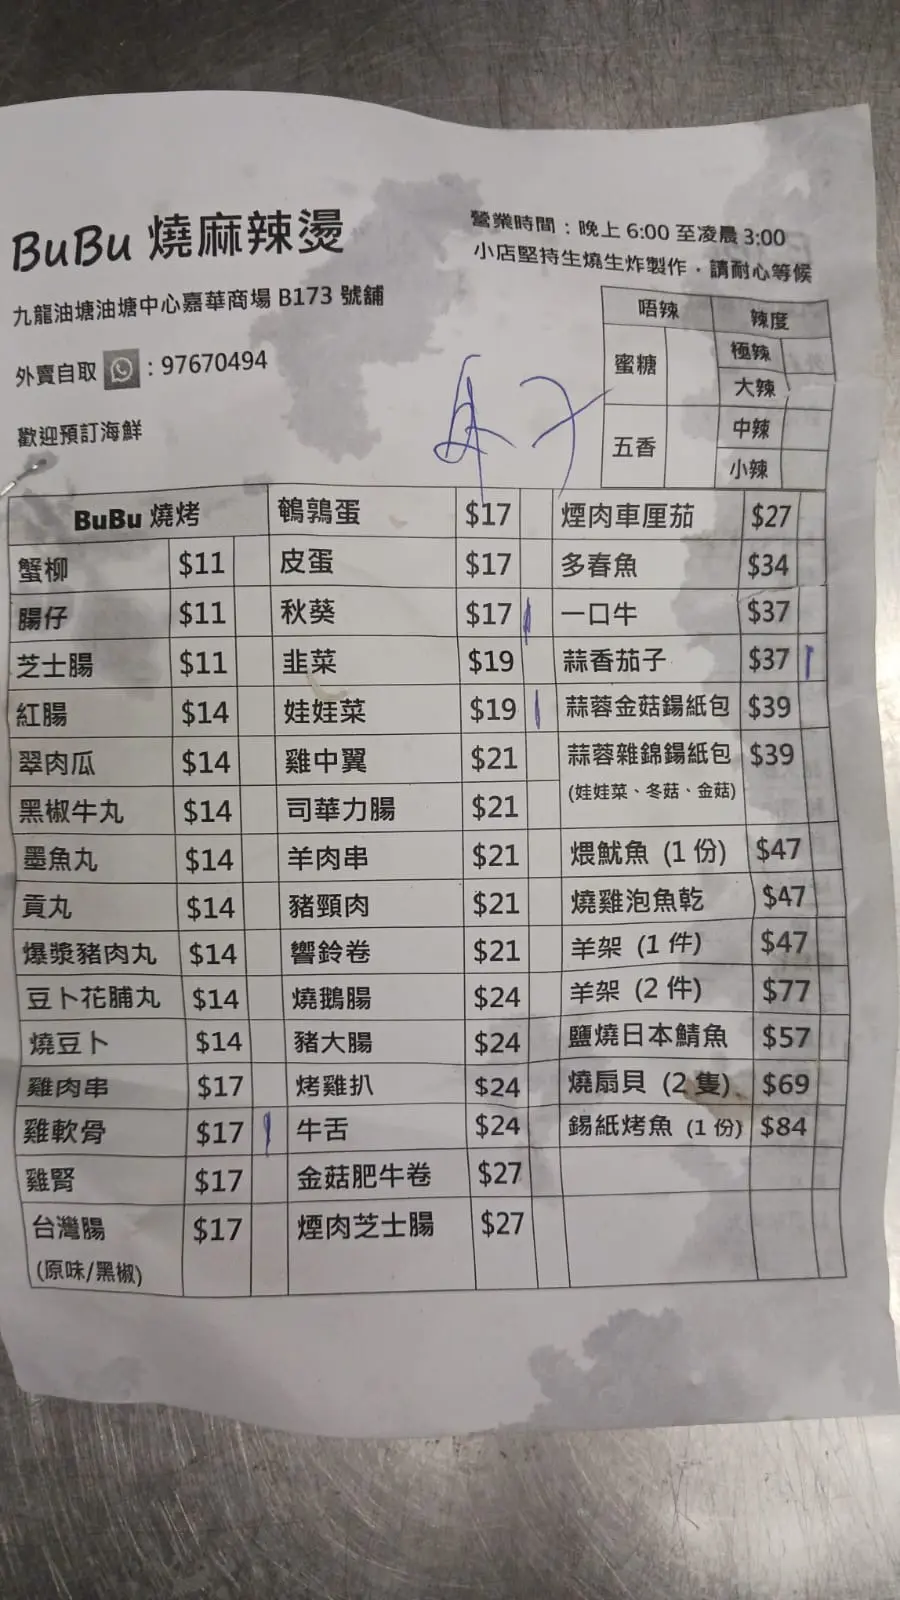 BuBu 燒麻辣燙
九龍油塘油塘中心嘉華商場 B173 號舖
外賣自取 : 97670494
歡迎預訂海鮮
營業時間：晚上 6:00 至凌晨 3:00
小店堅持生燒生炸製作，請耐心等候
唔辣 辣度
蜜糖 極辣
大辣
五香 中辣
小辣
BuBu 燒烤
蟹柳 $11
腸仔 $11
芝士腸 $11
紅腸 $14
翠肉瓜 $14
黑椒牛丸 $14
墨魚丸 $14
貢丸 $14
爆漿豬肉丸 $14
豆卜花脯丸 $14
燒豆卜 $14
雞肉串 $17
雞軟骨 $17
雞腎 $17
台灣腸 $17
(原味/黑椒)
鵪鶉蛋 $17
皮蛋 $17
秋葵 $17
韭菜 $19
娃娃菜 $19
雞中翼 $21
司華力腸 $21
羊肉串 $21
豬頸肉 $21
響鈴卷 $21
燒鵝腸 $24
豬大腸 $24
烤雞扒 $24
牛舌 $24
金菇肥牛卷 $27
煙肉芝士腸 $27
煙肉車厘茄 $27
多春魚 $34
一口牛 $37
蒜香茄子 $37
蒜蓉金菇錫紙包 $39
蒜蓉雜錦錫紙包 $39
(娃娃菜、冬菇、金菇)
煨魷魚 (1 份) $47
燒雞泡魚乾 $47
羊架 (1 件) $47
羊架 (2 件) $77
鹽燒日本鯖魚 $57
燒扇貝 (2 隻) $69
錫紙烤魚 (1 份) $84